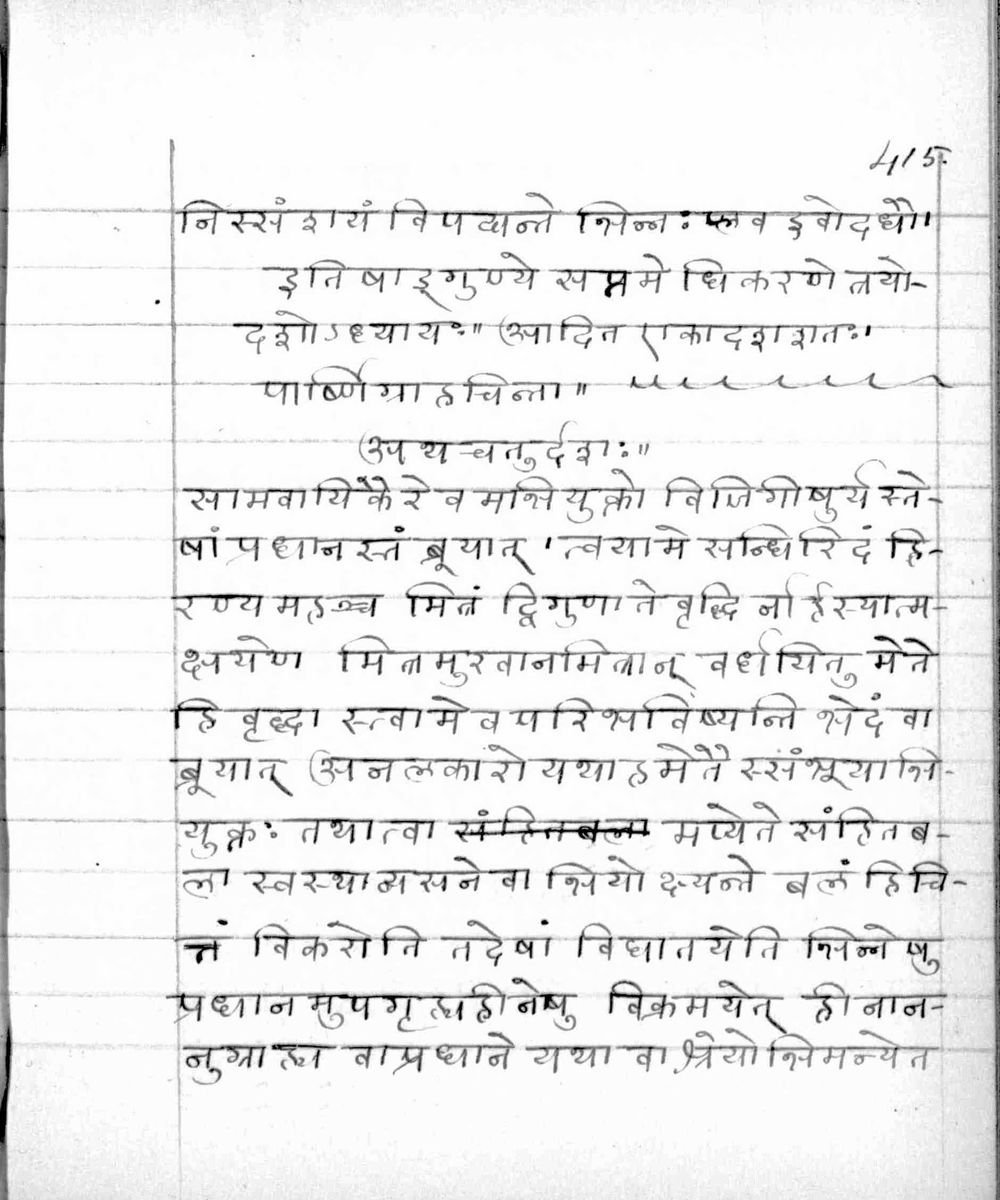 415.
निस्संशयं विपद्यन्ते भिन्नः प्लव इवोदधौ।
इति षाड्गुण्ये सप्तमेधिकरणे त्रयो-
दशोऽध्यायः॥ आदित एकादशशतः।
पार्ष्णिग्राहचिन्ता॥
अथ चतुर्दशः॥
सामवायिकैरेवमभियुक्तो विजिगीषुर्यस्ते-
षां प्रधानस्तं ब्रूयात् । त्वया मे सन्धिरिदं हि-
रण्यमहञ्च मित्रं द्विगुणा ते वृद्धि र्नार्हस्यात्म-
क्षयेण मित्रमुखानमित्रान् वर्धयितु मेते
हि वृद्धा स्त्वामेव परिभविष्यन्ति भेदं वा
ब्रूयात् अनलकारो यथाहमेतै स्संभूयाभि-
युक्तः तथा त्वा संहितबला मप्येते संहितब-
ला स्वस्था व्यसने वाभियोक्ष्यन्ते बलं हि चि-
त्तं विकरोति तदेषां विघातयेति भिन्नेषु
प्रधानमुपगृह्य हीनेषु विक्रमयेत् हीनान-
नुग्राह्य वा प्रधाने यथा वा श्रेयोभिमन्येत